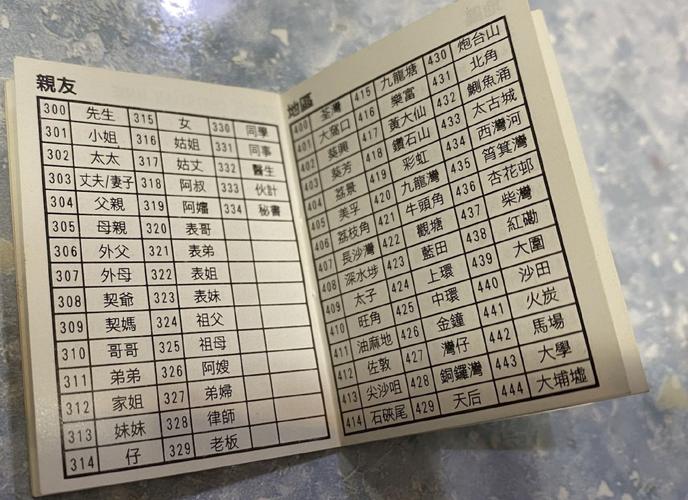 親友
300 先生 315 女 330 同學
301 小姐 316 姑姐 331 同事
302 太太 317 姑丈 332 醫生
303 丈夫/妻子 318 阿叔 333 伙計
304 父親 319 阿嬸 334 秘書
305 母親 320 表哥
306 外父 321 表弟
307 外母 322 表姐
308 契爺 323 表妹
309 契媽 324 祖父
310 哥哥 325 祖母
311 弟弟 326 阿嫂
312 家姐 327 弟婦
313 妹妹 328 律師
314 仔 329 老板
地區
400 荃灣 415 九龍塘 430 炮台山
401 大窩口 416 樂富 431 北角
402 葵興 417 黃大仙 432 鰂魚涌
403 葵芳 418 鑽石山 433 太古城
404 荔景 419 彩虹 434 西灣河
405 美孚 420 九龍灣 435 筲箕灣
406 荔枝角 421 牛頭角 436 杏花邨
407 長沙灣 422 觀塘 437 柴灣
408 深水埗 423 藍田 438 紅磡
409 太子 424 上環 439 大圍
410 旺角 425 中環 440 沙田
411 油麻地 426 金鐘 441 火炭
412 佐敦 427 灣仔 442 馬場
413 尖沙咀 428 銅鑼灣 443 大學
414 石硤尾 429 天后 444 大埔墟